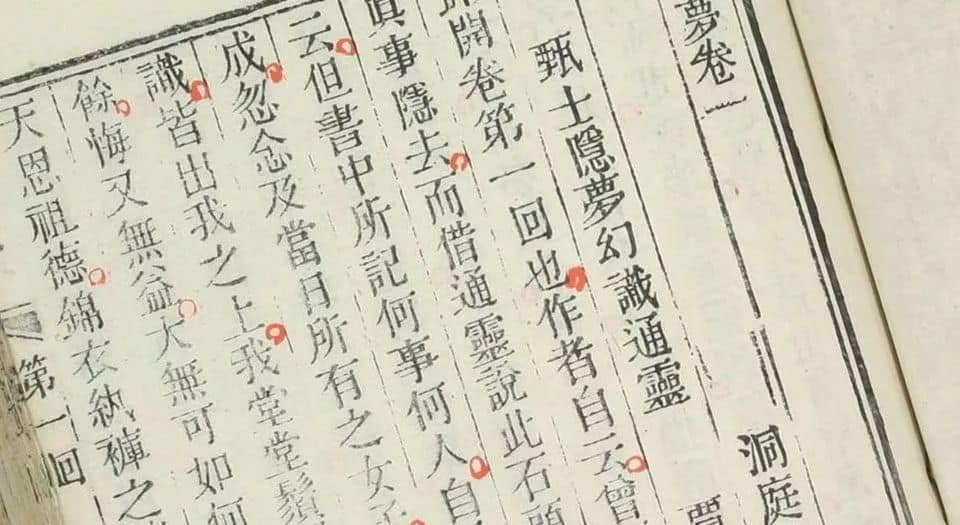 夢卷一
洞庭
甄士隱夢幻識通靈
開卷第一回也作者自云曾
真事隱去而借通靈說此石頭
云但書中所記何事何人自
成忽念及當日所有之女子
識皆出我之上我堂堂鬚
餘悔又無益大無可如何
天恩祖德錦衣紈褲之
第一回